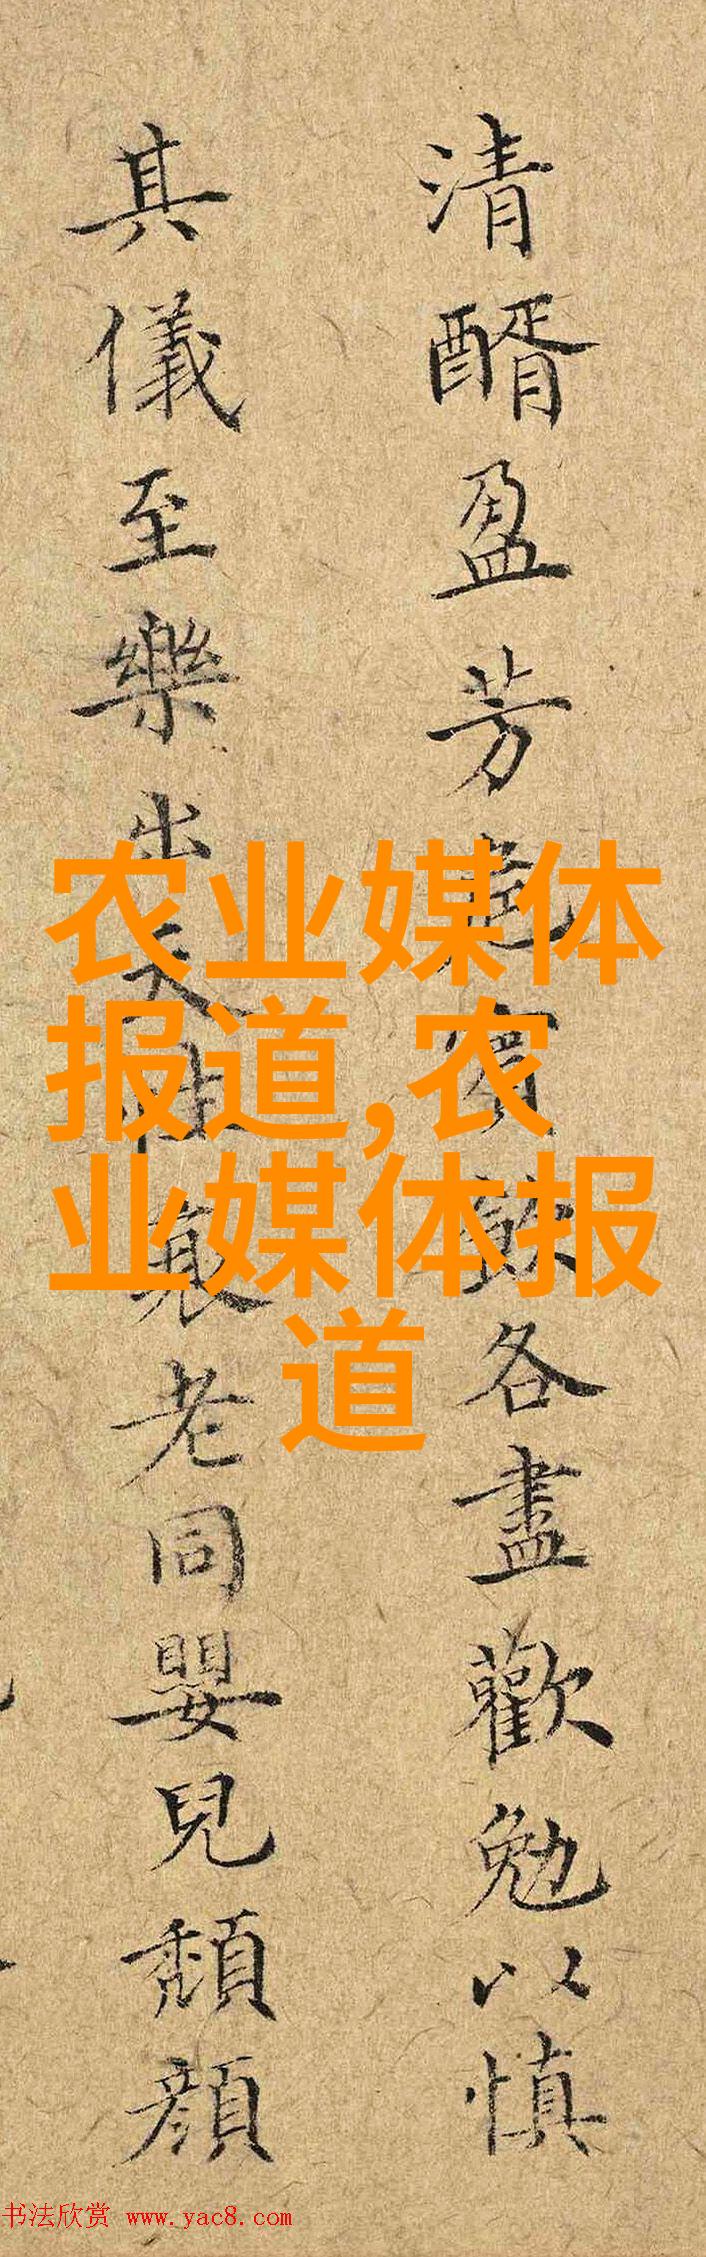 清醑盈芳飲各盡歡勉以慎
其儀至樂出天性衰老同嬰兒頹顏
农业媒体
报道,农
业媒体报
道
书法欣赏 www.yac8.com